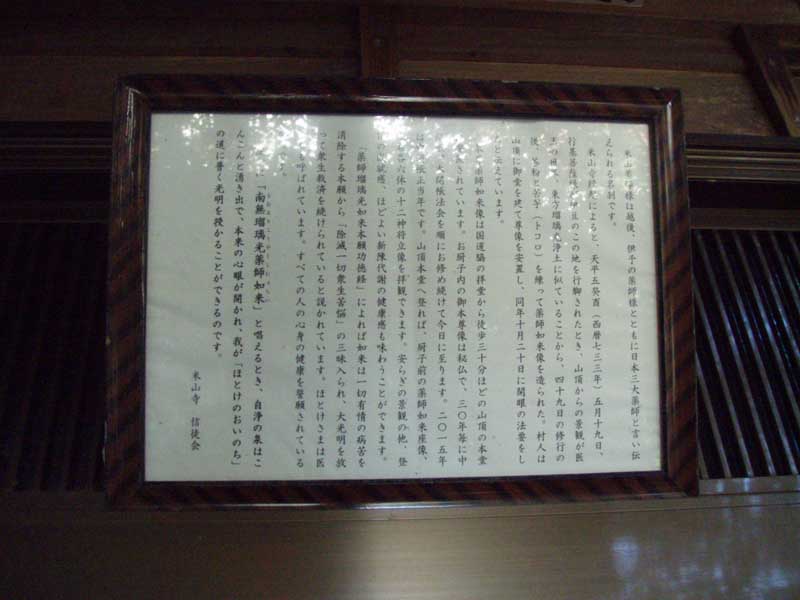 米山薬師様は越後、伊予の薬師様とともに日本三大薬師と言い伝
えられる名刹です。
米山寺縁起によると、天平五癸酉（西暦七三三年）五月十九日、
行基菩薩様がこの地を行脚されたとき、山頂からの景観が医
王の東方瑠璃光浄土に似ていることから、四十九日の修行の
後、粉と苔芋（トコロ）を練って薬師如来像を造られた。村人は
山頂に御堂を建て尊像を安置し、同年十月二十日に開眼の法要をし
たと伝えています。
薬師如来像は国道脇の拝堂から徒歩三十分ほどの山頂の本堂
されています。お厨子内の御本尊像は秘仏で、三〇年毎に中
大開帳法会を順にお修め続けて今日に至ります。二〇一五年
は開帳正当年です。山頂本堂へ登れば、厨子前の薬師如来座像、
六体の十二神将立像を拝観できます。安らぎの景観の他、登
感、ほどよい新陳代謝の健康感も味わうことができます。
「薬師瑠璃光如来本願功徳経」によれば如来は一切有情の病苦を
消除する本願から「除滅一切衆生苦悩」の三昧入られ、大光明を放
って衆生救済を続けられていると説かれています。ほとけさまは医
も呼ばれています。すべての人の心身の健康を誓願されている
「南無瑠璃光薬師如来」と唱えるとき、自浄の泉はこ
んこんと湧き出で、本来の心眼が開かれ、我が「ほとけのおいのち」
の道に普く光明を授かることができるのです。
米山寺　信徒会